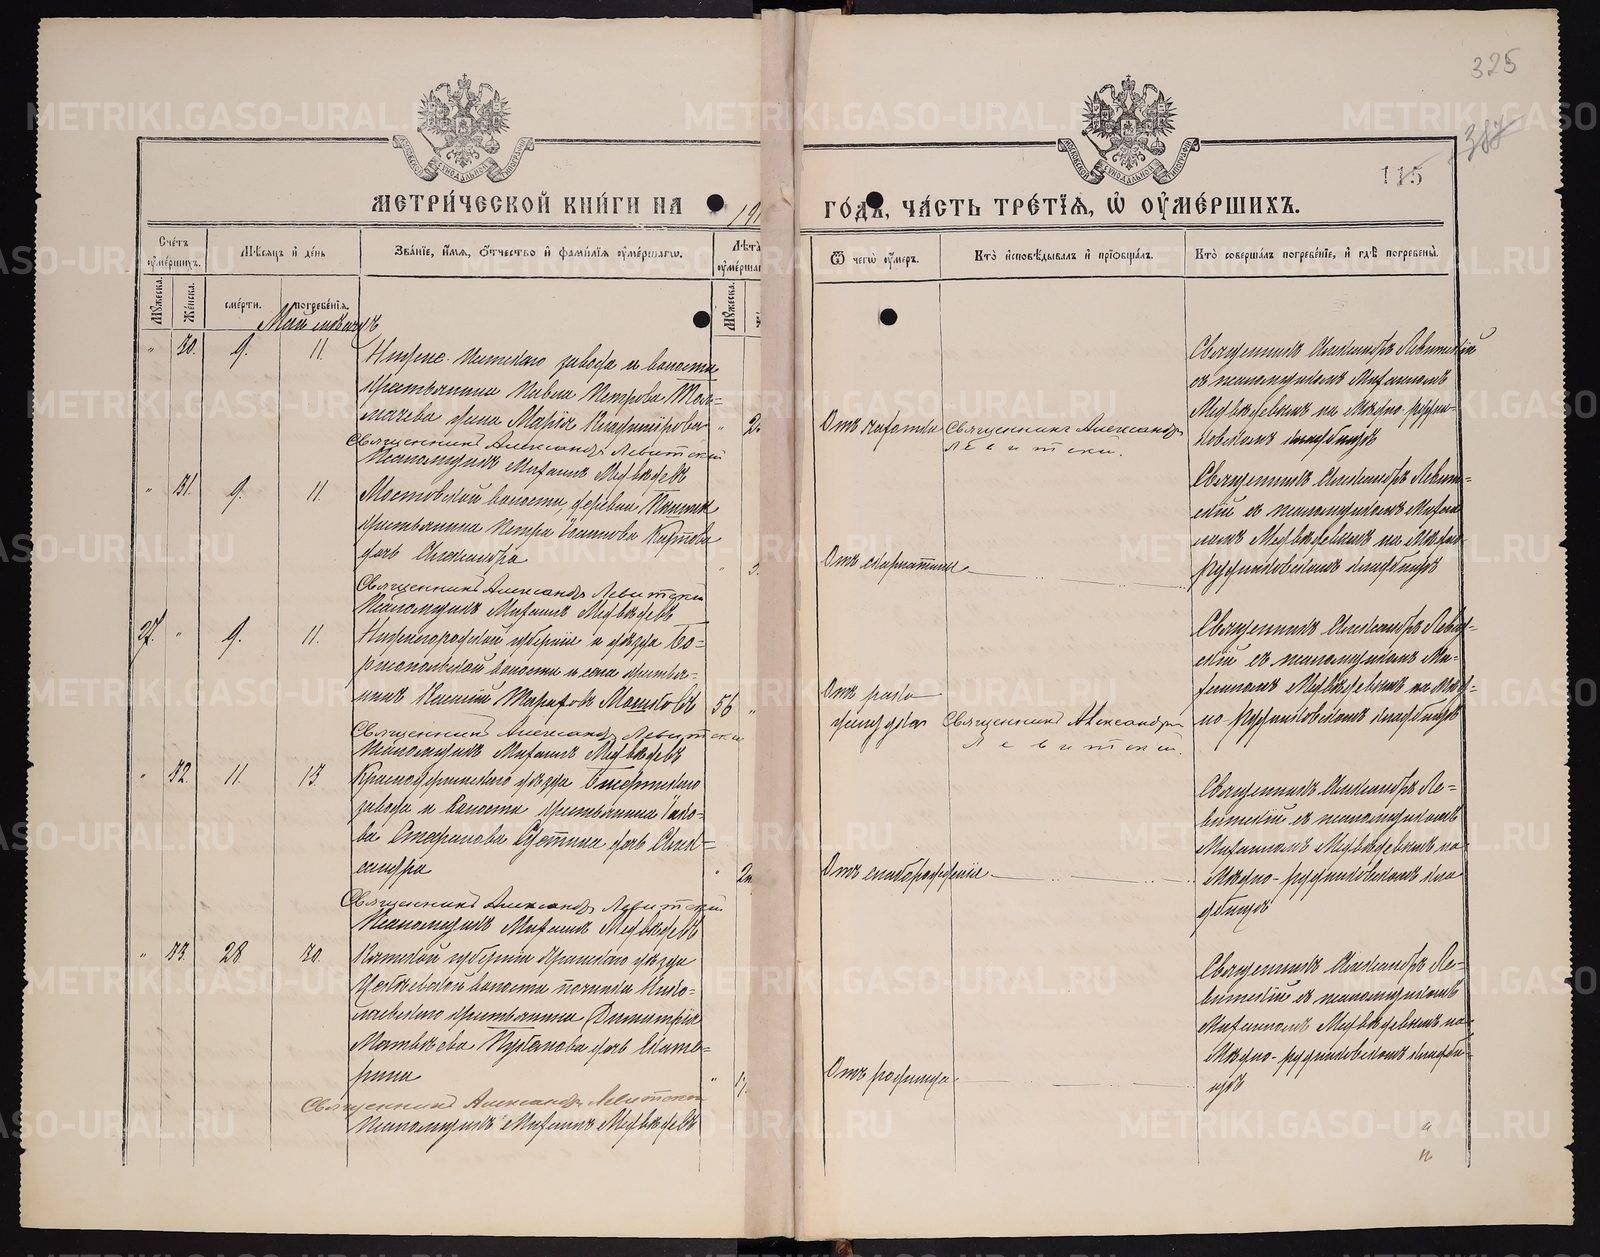 325
387
115
МЕТРИ́ЧЕСКОЙ КНИ́ГИ НА 191
ГО́ДЪ, ЧА́СТЬ ТРЕ́ТІѦ, Ѡ ОУМЕ́РШИХЪ.
Счетъ оумершихъ.
Мѣсяцъ и день
Званіе, имя, отчество и фамилія оумершагѡ.
Лѣта оумершаг
Ѿ чегѡ оумеръ.
Кто исповѣдывалъ и пріобщалъ.
Кто совершалъ погребеніе, и гдѣ погребены.
Мужеска.
Женска.
смерти.
погребенія.
Мужеска.
Май мѣсяцъ
" 30. 9. 11.
завода и волости
крестьянина Павла Петрова Тол=
мачева жена Марія
Священникъ Александръ Левитскій
Псаломщикъ Михаилъ Медвѣдевъ
Отъ чахотки
Священникъ Александръ
Левитскій.
Священникъ Александръ Левитскій
съ псаломщикомъ Михаиломъ
Медвѣдевымъ на Мѣдно-рудни-
ковскомъ кладбищѣ
" 31. 9. 11.
Мостовской волости, деревни
крестьянина Петра
дочь Александра
Священникъ Александръ Левитскій
Псаломщикъ Михаилъ Медвѣдевъ
Отъ скарлатины
Священникъ Александръ Левит=
скій съ псаломщикомъ Михаи
ломъ Медвѣдевымъ на Мѣдно-
рудниковскомъ кладбищѣ
27. " 9. 11.
Нижегородской губерніи и уѣзда Бо=
рисопольской волости и села крестья=
нинъ
56 "
Священникъ Александръ Левитскій
Псаломщикъ Михаилъ Медвѣдевъ
Отъ рака
желудка
Священникъ Александръ
Левитскій.
Священникъ Александръ Левит=
скій съ псаломщикомъ Ми=
хаиломъ Медвѣдевымъ на Мѣд=
но-рудниковскомъ кладбищѣ
" 32. 11. 13.
Красноуфимскаго уѣзда Бисертскаго
завода и волости крестьянина Іако=
ва Стефанова дочь Алек=
сандра
Священникъ Александръ Левитскій
Псаломщикъ Михаилъ Медвѣдевъ
Отъ слаборожденія
Священникъ Александръ Ле=
витскій съ псаломщикомъ
Михаиломъ Медвѣдевымъ на
Мѣдно-рудниковскомъ кла
дбищѣ
" 33. 28 30.
Вятской губерніи уѣзда
волости починка Нико=
лаевскаго крестьянина Димитрія
Матвѣева дочь Екате=
рина
Священникъ Александръ Левитскій
Псаломщикъ Михаилъ Медвѣдевъ
Отъ родимца
Священникъ Александръ Ле=
витскій съ псаломщикомъ
Михаиломъ Медвѣдевымъ на
Мѣдно-рудниковскомъ кладби=
щѣ
METRIKI.GASO-URAL.RU